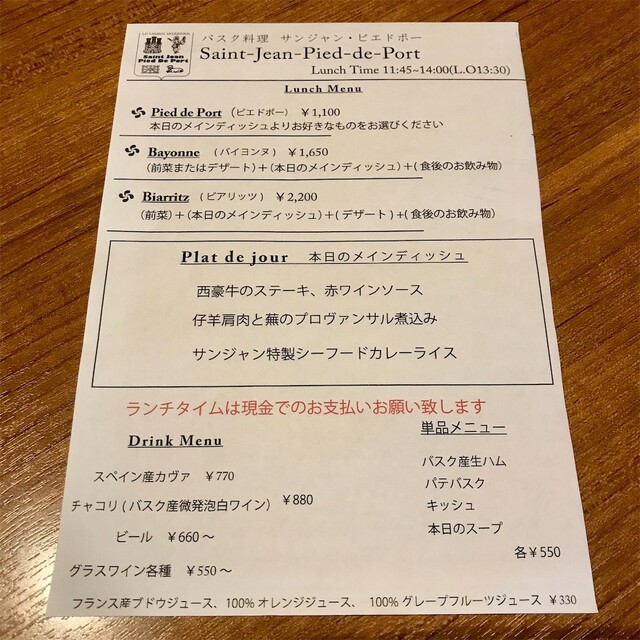 Saint Jean
Pied De Port
バスク料理 サンジャン・ピエドポー
Saint-Jean-Pied-de-Port
Lunch Time 11:45~14:00(L.O13:30)
Lunch Menu
Pied de Port (ピエドポー) ￥1,100
本日のメインディッシュよりお好きなものをお選びください
Bayonne (バイヨンヌ) ￥1,650
(前菜またはデザート)＋(本日のメインディッシュ)＋(食後のお飲み物)
Biarritz (ビアリッツ) ￥2,200
(前菜)＋(本日のメインディッシュ)＋(デザート)+(食後のお飲み物)
Plat de jour 本日のメインディッシュ
西豪牛のステーキ、赤ワインソース
仔羊肩肉と蕪のプロヴァンサル煮込み
サンジャン特製シーフードカレーライス
ランチタイムは現金でのお支払いお願い致します
Drink Menu
スペイン産カヴァ ￥770
チャコリ(バスク産微発泡白ワイン) ￥880
ビール ￥660～
グラスワイン各種 ￥550～
単品メニュー
バスク産生ハム
パテバスク
キッシュ
本日のスープ
各￥550
フランス産ブドウジュース、100%オレンジジュース、 100%グレープフルーツジュース ￥330